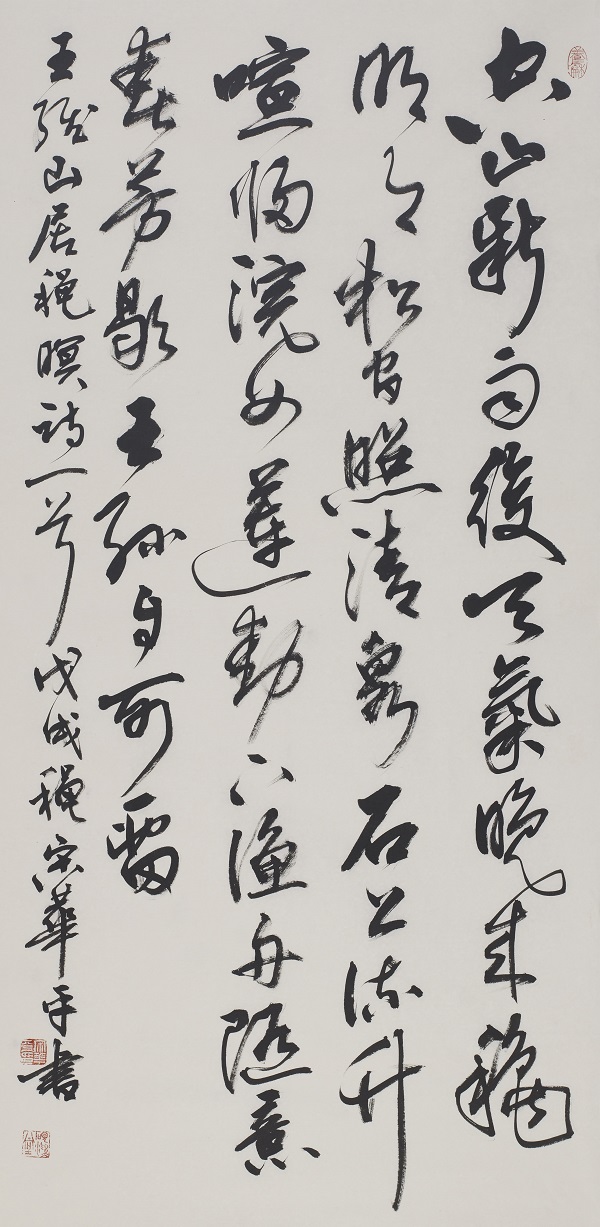 空山新雨後天氣晚來穐
明月松間照清泉石上流竹
喧歸浣女蓮動下漁舟隨意
春芳歇王孫自可留
王維山居穐暝詩一首戊戌穐宋華平書